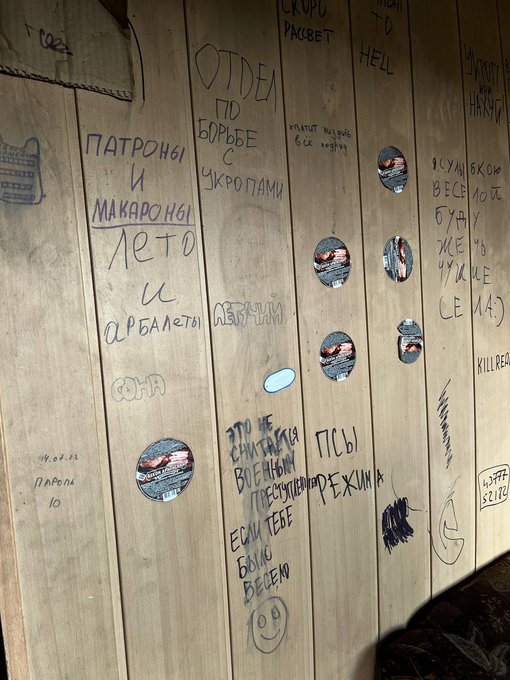 СКОРО
РАССВЕТ
TO
HELL
УКРОП
ИЛИ
НАХУЙ
ОТДЕЛ
ПО
БОРЬБЕ
С
УКРОПАМИ
ПАТРОНЫ
И
МАКАРОНЫ
ЛЕТО
И
АРБАЛЕТЫ
ХВАТИТ ПИЗДИТЬ
ВСЁ ПОДРЯД
Я С УЛЫБКОЮ
ВЕСЕЛОЙ
БУДУ
ЖЕЧЬ
ЧУЖИЕ
СЕЛА:)
ЛЕТУЧИЙ
СОНА
KILL
14.07.22
ПАРОЛЬ
10
ЭТО НЕ
СЧИТАЕТСЯ
ВОЕННЫМ
ПРЕСТУПЛЕНИЕМ
ЕСЛИ ТЕБЕ
БЫЛО
ВЕСЕЛО
ПСЫ
РЕЖИМА
43777
52182